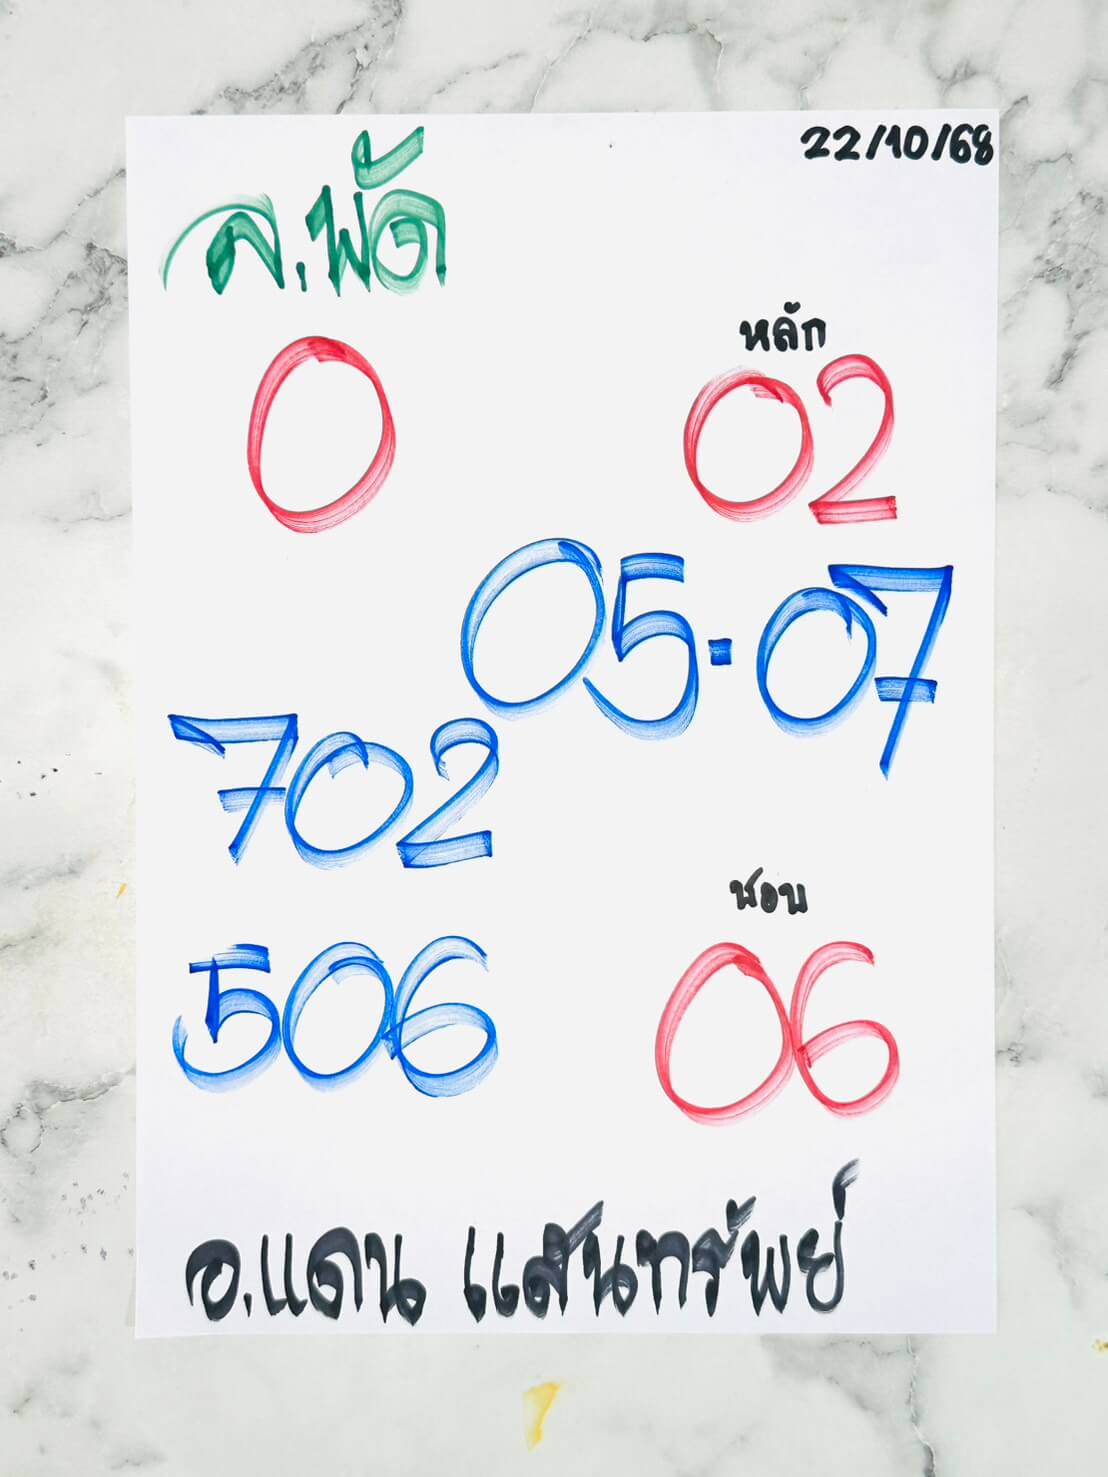 22/10/68
ล.พัด
หลัก
0 02
05-07
702
ชอบ
506 06
อ.แดน แสนทรัพย์